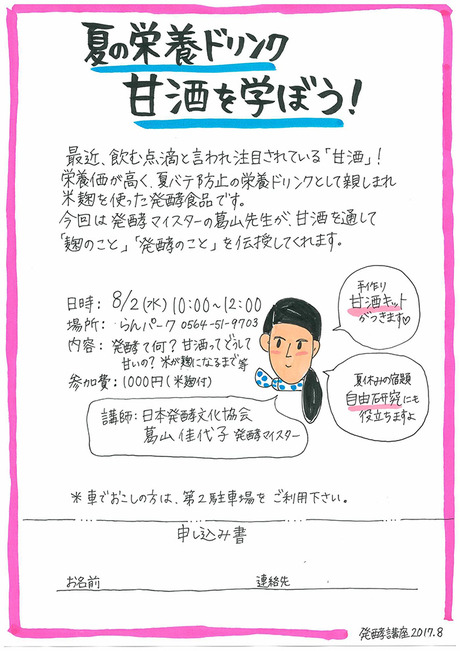 夏の栄養ドリンク
甘酒を学ぼう!
最近、飲む点滴と言われ注目されている「甘酒」!
栄養価が高く、夏バテ防止の栄養ドリンクとして親しまれ
米麹を使った発酵食品です。
今回は発酵マイスターの葛山先生が、甘酒を通して
「麹のこと」「発酵のこと」を伝授してくれます。
日時: 8/2(水) 10:00~12:00
場所: らんパーク 0564-51-9703
内容: 発酵て何?甘酒ってどうして
甘いの?米が麹になるまで等
参加費: 1000円(米麹付)
手作り
甘酒キット
がつきます♡
夏休みの宿題
自由研究にも
役立ちますよ
講師: 日本発酵文化協会
葛山 佳代子 発酵マイスター
*車でおこしの方は、第2駐車場をご利用下さい。
申し込み書
お名前 連絡先
発酵講座2017.8